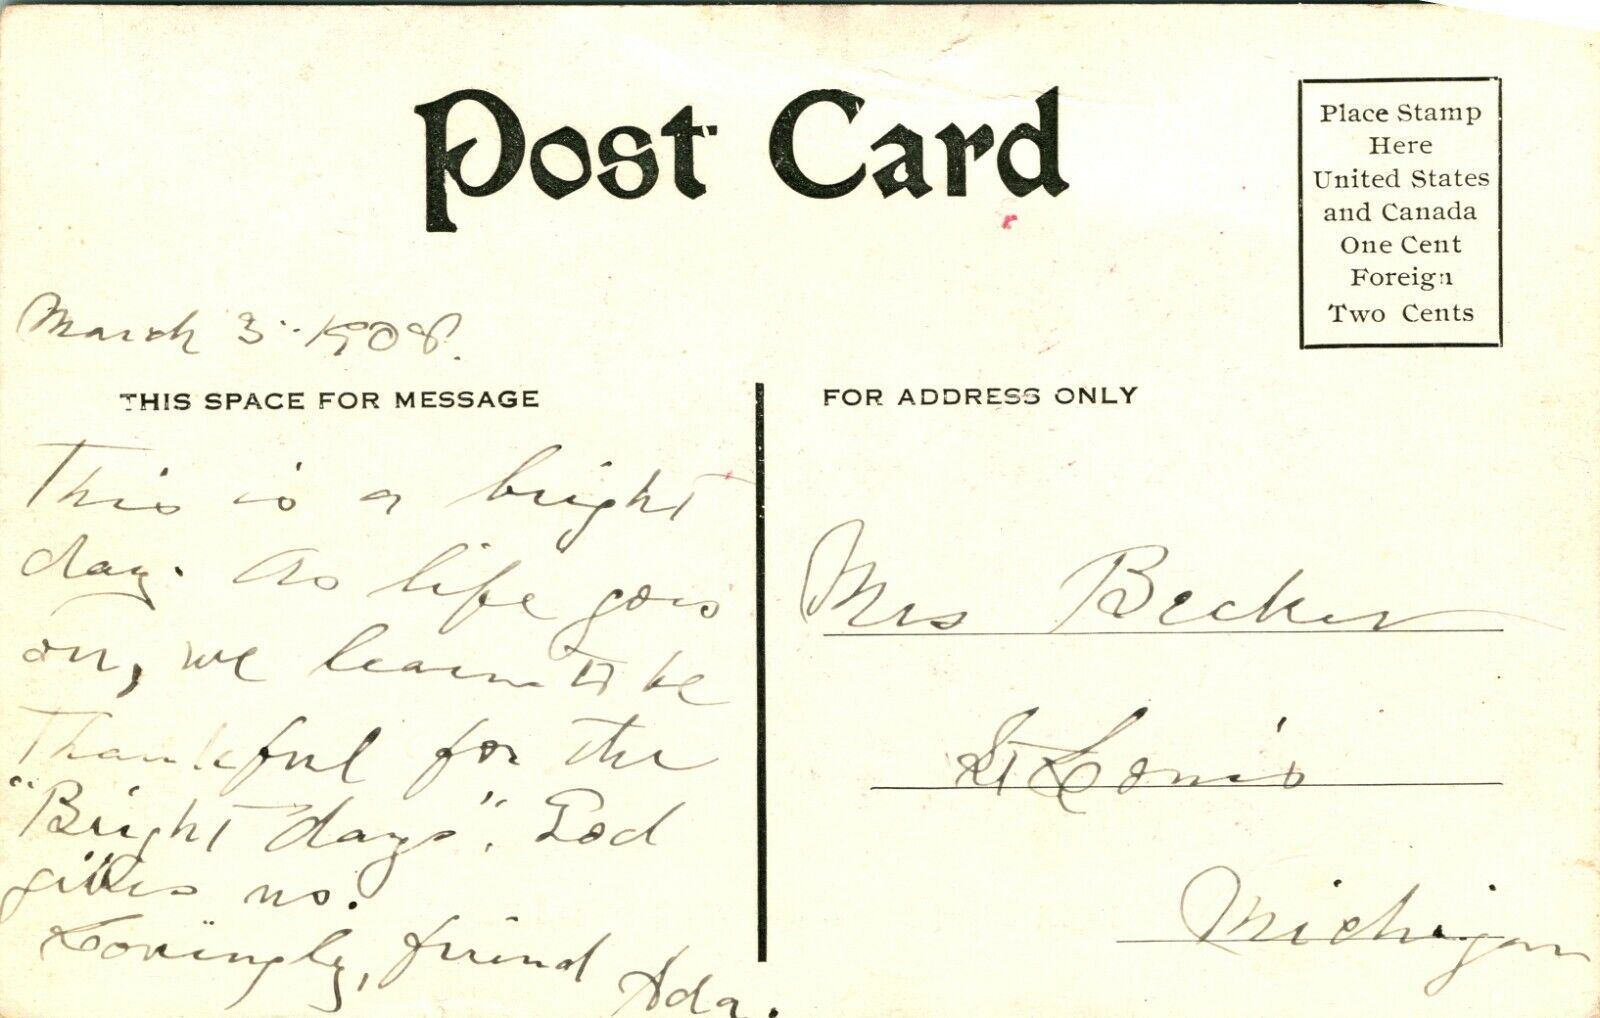 Post Card
Place Stamp
Here
United States
and Canada
One Cent
Foreign
Two Cents
March 3-1908.
THIS SPACE FOR MESSAGE
FOR ADDRESS ONLY
This is a bright
day. As life goes
on, we learn to be
Thankful for the
"Bright days". God
gives us.
Lovingly, friend Ada.
Mrs Becker
St Louis
Michigan